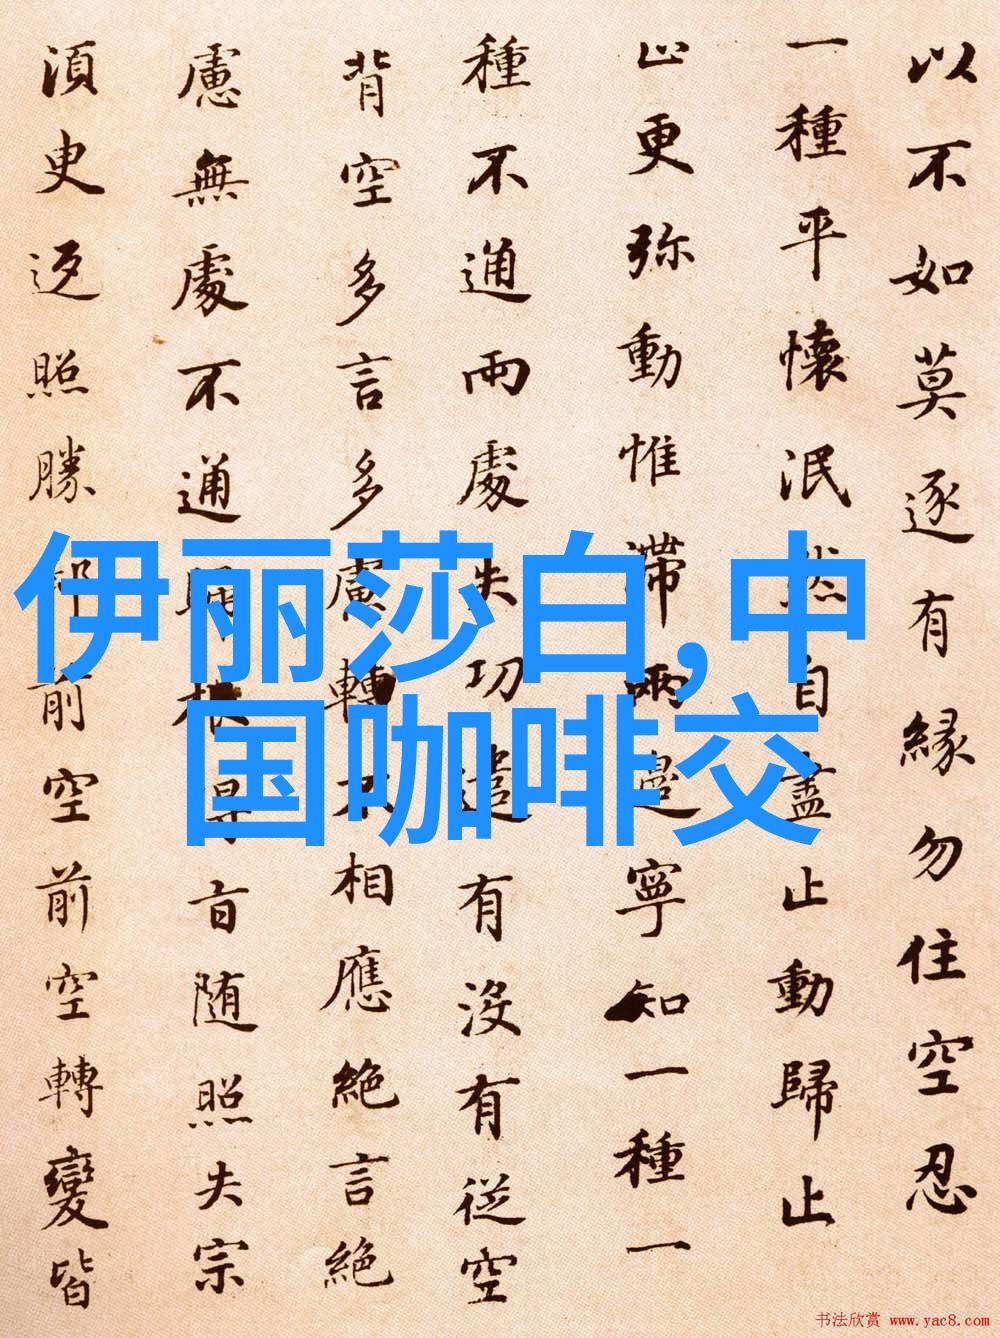 以不如莫逐有緣勿住空忍
一種平懷泯然自盡止動歸止
止更弥動惟滯兩邊寧知一種一
種不通兩處失功遣有没有從空
背空多言多慮轉不相應絶言絶
慮無處不通歸根得旨随照失宗
須臾返照勝却前空前空轉變皆
伊丽莎白,中
国咖啡交
书法欣赏 www.yac8.com